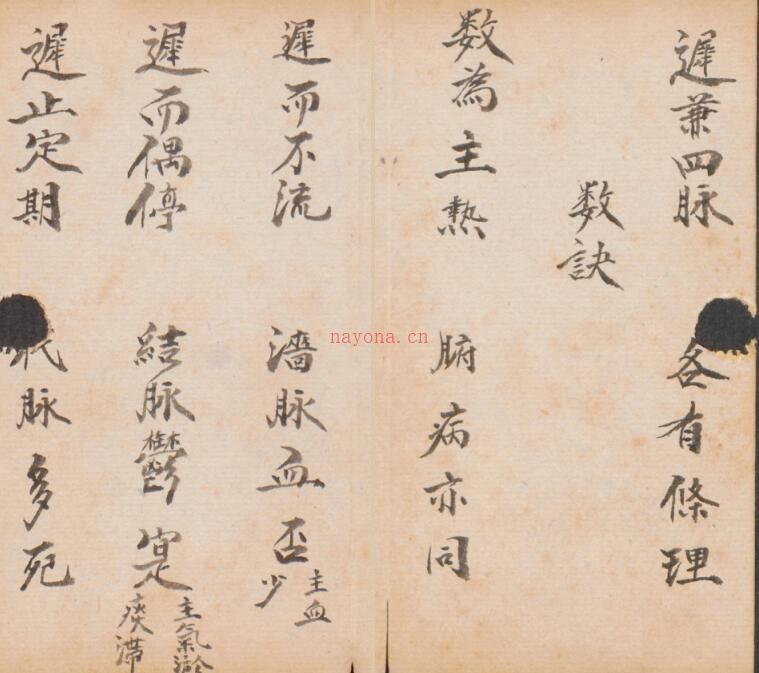 遲兼四脉 各有條理
数訣
数為主熱 腑病亦同
遲而不流 濇脉血否 主血少
遲而偶停 結脉鬱寔 主氣 痰滞
遲止定期 脉多死
nayona.cn